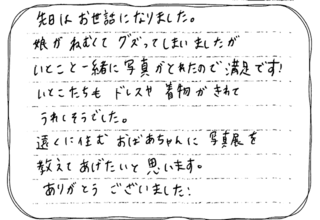 先日は お世話になりました。
娘が ねむくて グズってしまいましたが
いとこと一緒に写真がとれたので満足です!
いとこたちも ドレスや 着物が きれて
うれしそうでした。
遠くに住む おばあちゃんに 写真展を
教えてあげたいと 思います。
ありがとう ございました!